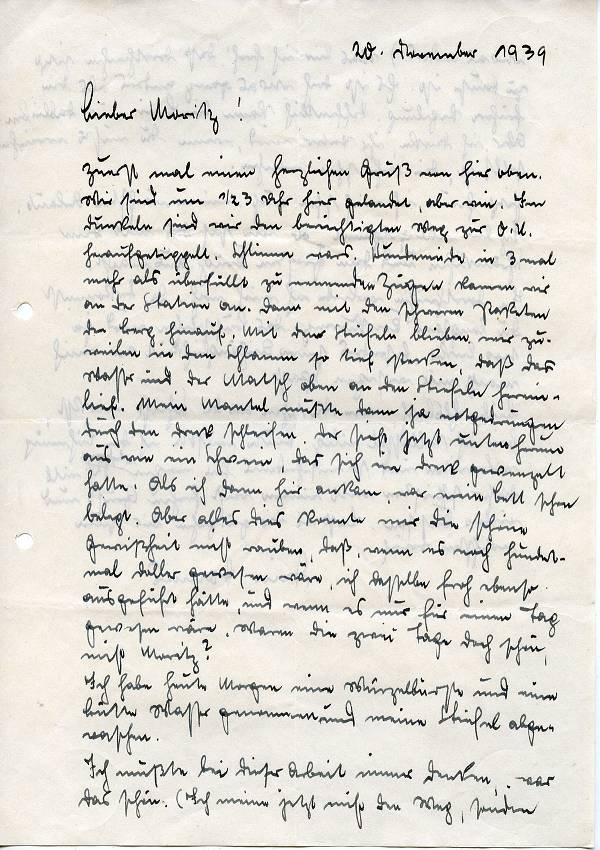 20. November 1939
Lieber Moritz!
Zuerst mal einen herzlichen Gruß von hier oben.
Wir sind um 1/2 3 Uhr hier gelandet, aber wie. Im
Dunkeln sind wir den berüchtigten Weg zur O.U.
heraufgetippelt. Schlimm wars. Hundemüde in 3 mal
mehr als überfüllt zu nennenden Zügen kamen wir
an der Station an. Dann mit den schweren Paketen
den Berg hinauf. Mit den Stiefeln blieben wir zu-
weilen in dem Schlamm so tief stecken, daß das
Wasser und der Matsch oben an den Stiefeln herein-
lief. Mein Mantel mußte dann ja notgedrungen
durch den Dreck schleifen. Der sieht jetzt untenherum
aus wie ein Schwein, das sich im Dreck gewenzelt
hatte. Als ich dann hier ankam, war mein Bett schon
belegt. Aber alles dies konnte mir die schöne
Gewißheit nicht rauben, daß, wenn es noch hundert-
mal doller gewesen wäre, ich dasselbe froh ebenso
ausgeführt hätte, und wenn es nur für einen Tag
gewesen wäre. Waren die zwei Tage doch schön,
nicht Moritz?
Ich habe heute Morgen eine Wurzelbürste und eine
Bütte Wasser genommen und meine Stiefel abge-
waschen.
Ich mußte bei dieser Arbeit immer denken, war
das schön. (Ich meine jetzt nicht den Weg, sondern